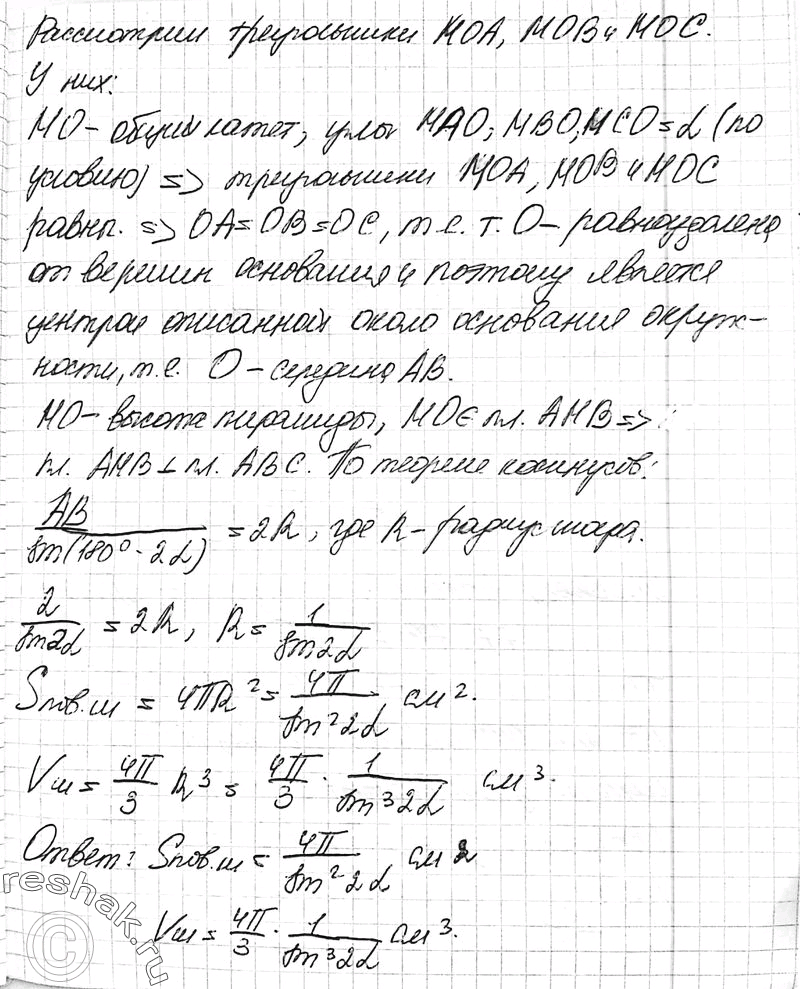 Рассмотрим треугольники MOA, MOB и MOC.
У них:
MO – общий катет, углы MAO, MBO, MCO = α (по
условию) => треугольники MOA, MOB и MOC
равны. => OA = OB = OC, т.е. т. O – равноудалена
от вершин основания и поэтому является
центром описанной около основания окруж-
ности, т.е. O – середина AB.
MO – высота пирамиды, MO ∈ пл. AMB =>
пл. AMB ⊥ пл. ABC. По теореме косинусов:
AB / sin(180° - 2α) = 2R, где R – радиус шара.
2 / sin2α = 2R, R = 1 / sin2α
Sпов.ш = 4πR² = 4π / sin²2α см².
Vш = 4π/3 R³ = 4π/3 · 1 / sin³2α см³.
Ответ: Sпов.ш = 4π / sin²2α см²
Vш = 4π/3 · 1 / sin³2α см³.
reshak.ru
©